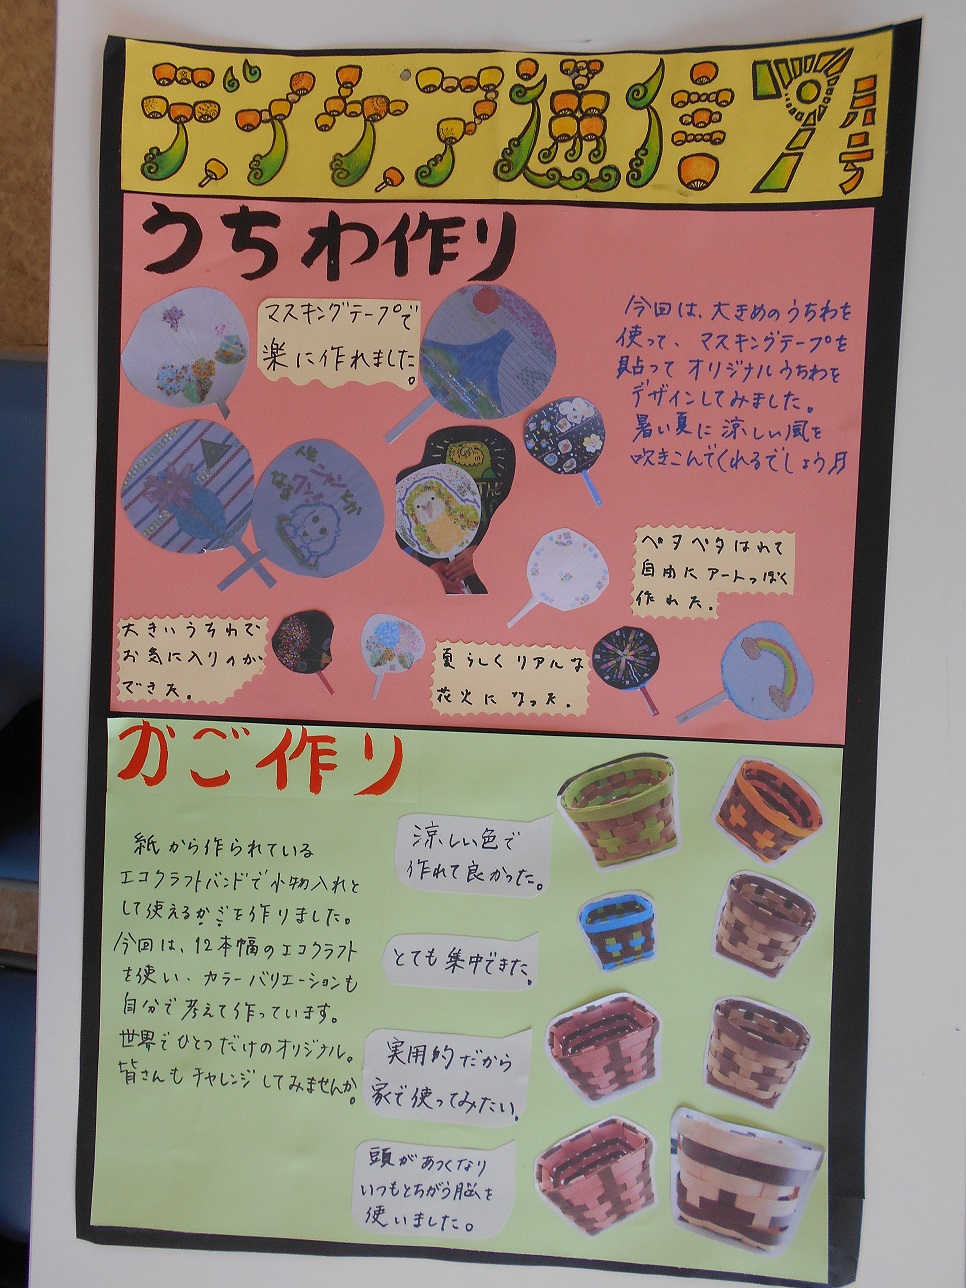 デイケア通信 7月号
うちわ作り
マスキングテープで
楽に作れました。
今回は、大きめのうちわを
使って、マスキングテープを
貼って オリジナルうちわを
デザインしてみました。
暑い夏に涼しい風を
吹きこんでくれるでしょう
人生
ニャンとか
なるワン!
ペタペタはれて
自由にアートっぽく
作れた。
大きいうちわで
お気に入りのが
できた。
夏らしくリアルな
花火になった。
かご作り
紙から作られている
エコクラフトバンドで小物入れと
して使えるかごを作りました。
今回は、12本幅のエコクラフト
を使い、カラーバリエーションも
自分で考えて作っています。
世界でひとつだけのオリジナル。
皆さんもチャレンジしてみませんか。
涼しい色で
作れて良かった。
とても集中できた。
実用的だから
家で使ってみたい。
頭があつくなり
いつもとちがう脳を
使いました。